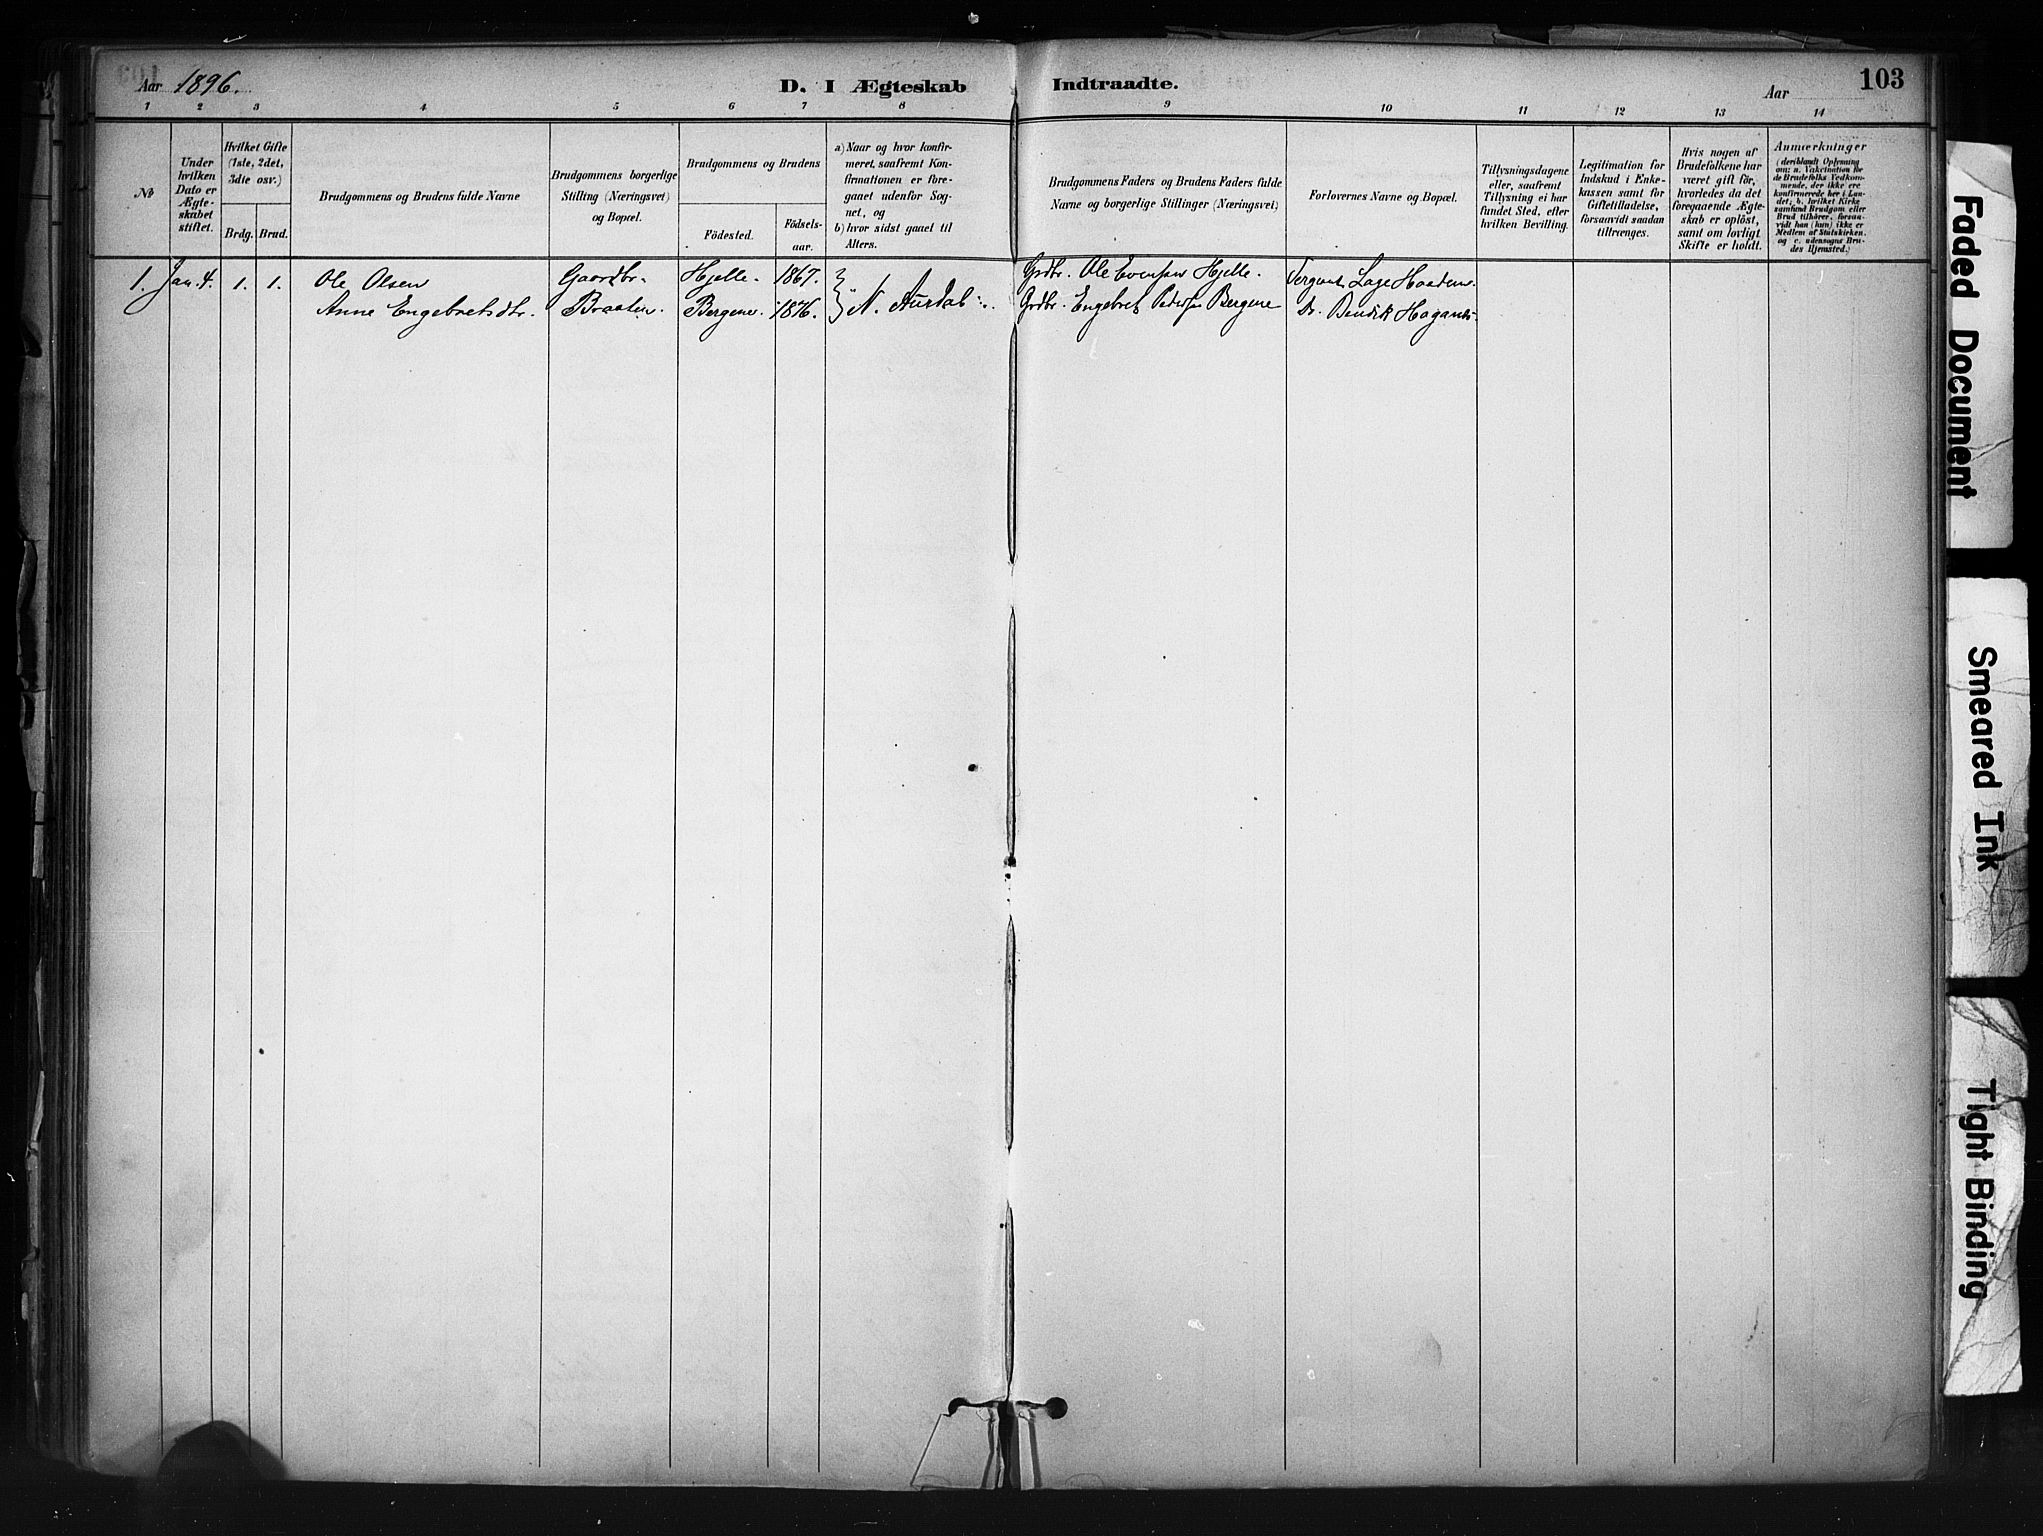 Aar 1896.
D. I Ægteskab Indtraadte.
Aar
103
1 2 3 4 5 6 7 8 9 10 11 12 13 14
No
Under hvilken Dato er Ægte-skabet stiftet.
Hvilket Gifte (1ste, 2det, 3die osv.)
Brdg. Brud.
Brudgommens og Brudens fulde Navne
Brudgommens borgerlige Stilling (Næringsvei) og Bopæl.
Brudgommens og Brudens
Födested.
Födsels-aar.
a) Naar og hvor konfir-
meret, saafremt Kon-
firmationen er fore-
gaaet udenfor Sog-
net, og
b) hvor sidst gaaet til
Alters.
Brudgommens Faders og Brudens Faders fulde
Navne og borgerlige Stillinger (Næringsvei)
Forlovernes Navne og Bopæl.
Tillysningsdagene
eller, saafremt
Tillysning ei har
fundet Sted, efter
hvilken Bevilling.
Legitimation for
Indskud i Enke-
kassen samt for
Giftetilladelse,
forsaavidt saadan
tiltrænges.
Hvis nogen af
Brudefolkene har
været gift før,
hvorledes da det
foregaaende Ægte-
skab er oplöst,
samt om lovligt
Skifte er holdt.
Anmærkninger
(deriblandt Oplysning
om: a. Vakcination for
de Brudefolks Vedkom-
mende, der ikke ere
konfirmerede her i Lan-
det; b. hvilket Kirke
samfund Brudgom eller
Brud tilhörer, forsaa-
vidt han (hun) ikke er
Medlem af Statskirken.
og c. udensogns Bru-
des Hjemsted.)
1. Jan. 4. 1. 1. Ole Olsen Gaardbr. Hjelle. 1867. Grdbr. Ole Evensen Hjelle. Sergeant Lage
Anne Engebretsdtr. Braaten. Bergene. 1876. N. Aurdal Grdbr. Engebret Pedersen Bergene Do. Bendik
Faded Document
Smeared Ink
Tight Binding